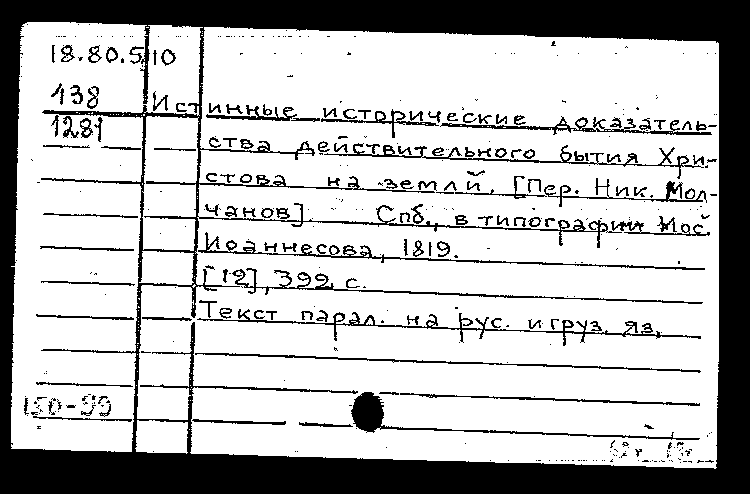 18.80.5.10
138
1281
Истинные исторические доказатель-
ства действительного бытия Хри-
стова на землй. [Пер. Ник. Мол-
чанов] Спб., в типографии Иос.
Иоаннесова, 1819.
[12], 399 с.
Текст парал. на рус. и груз. яз.
150-99